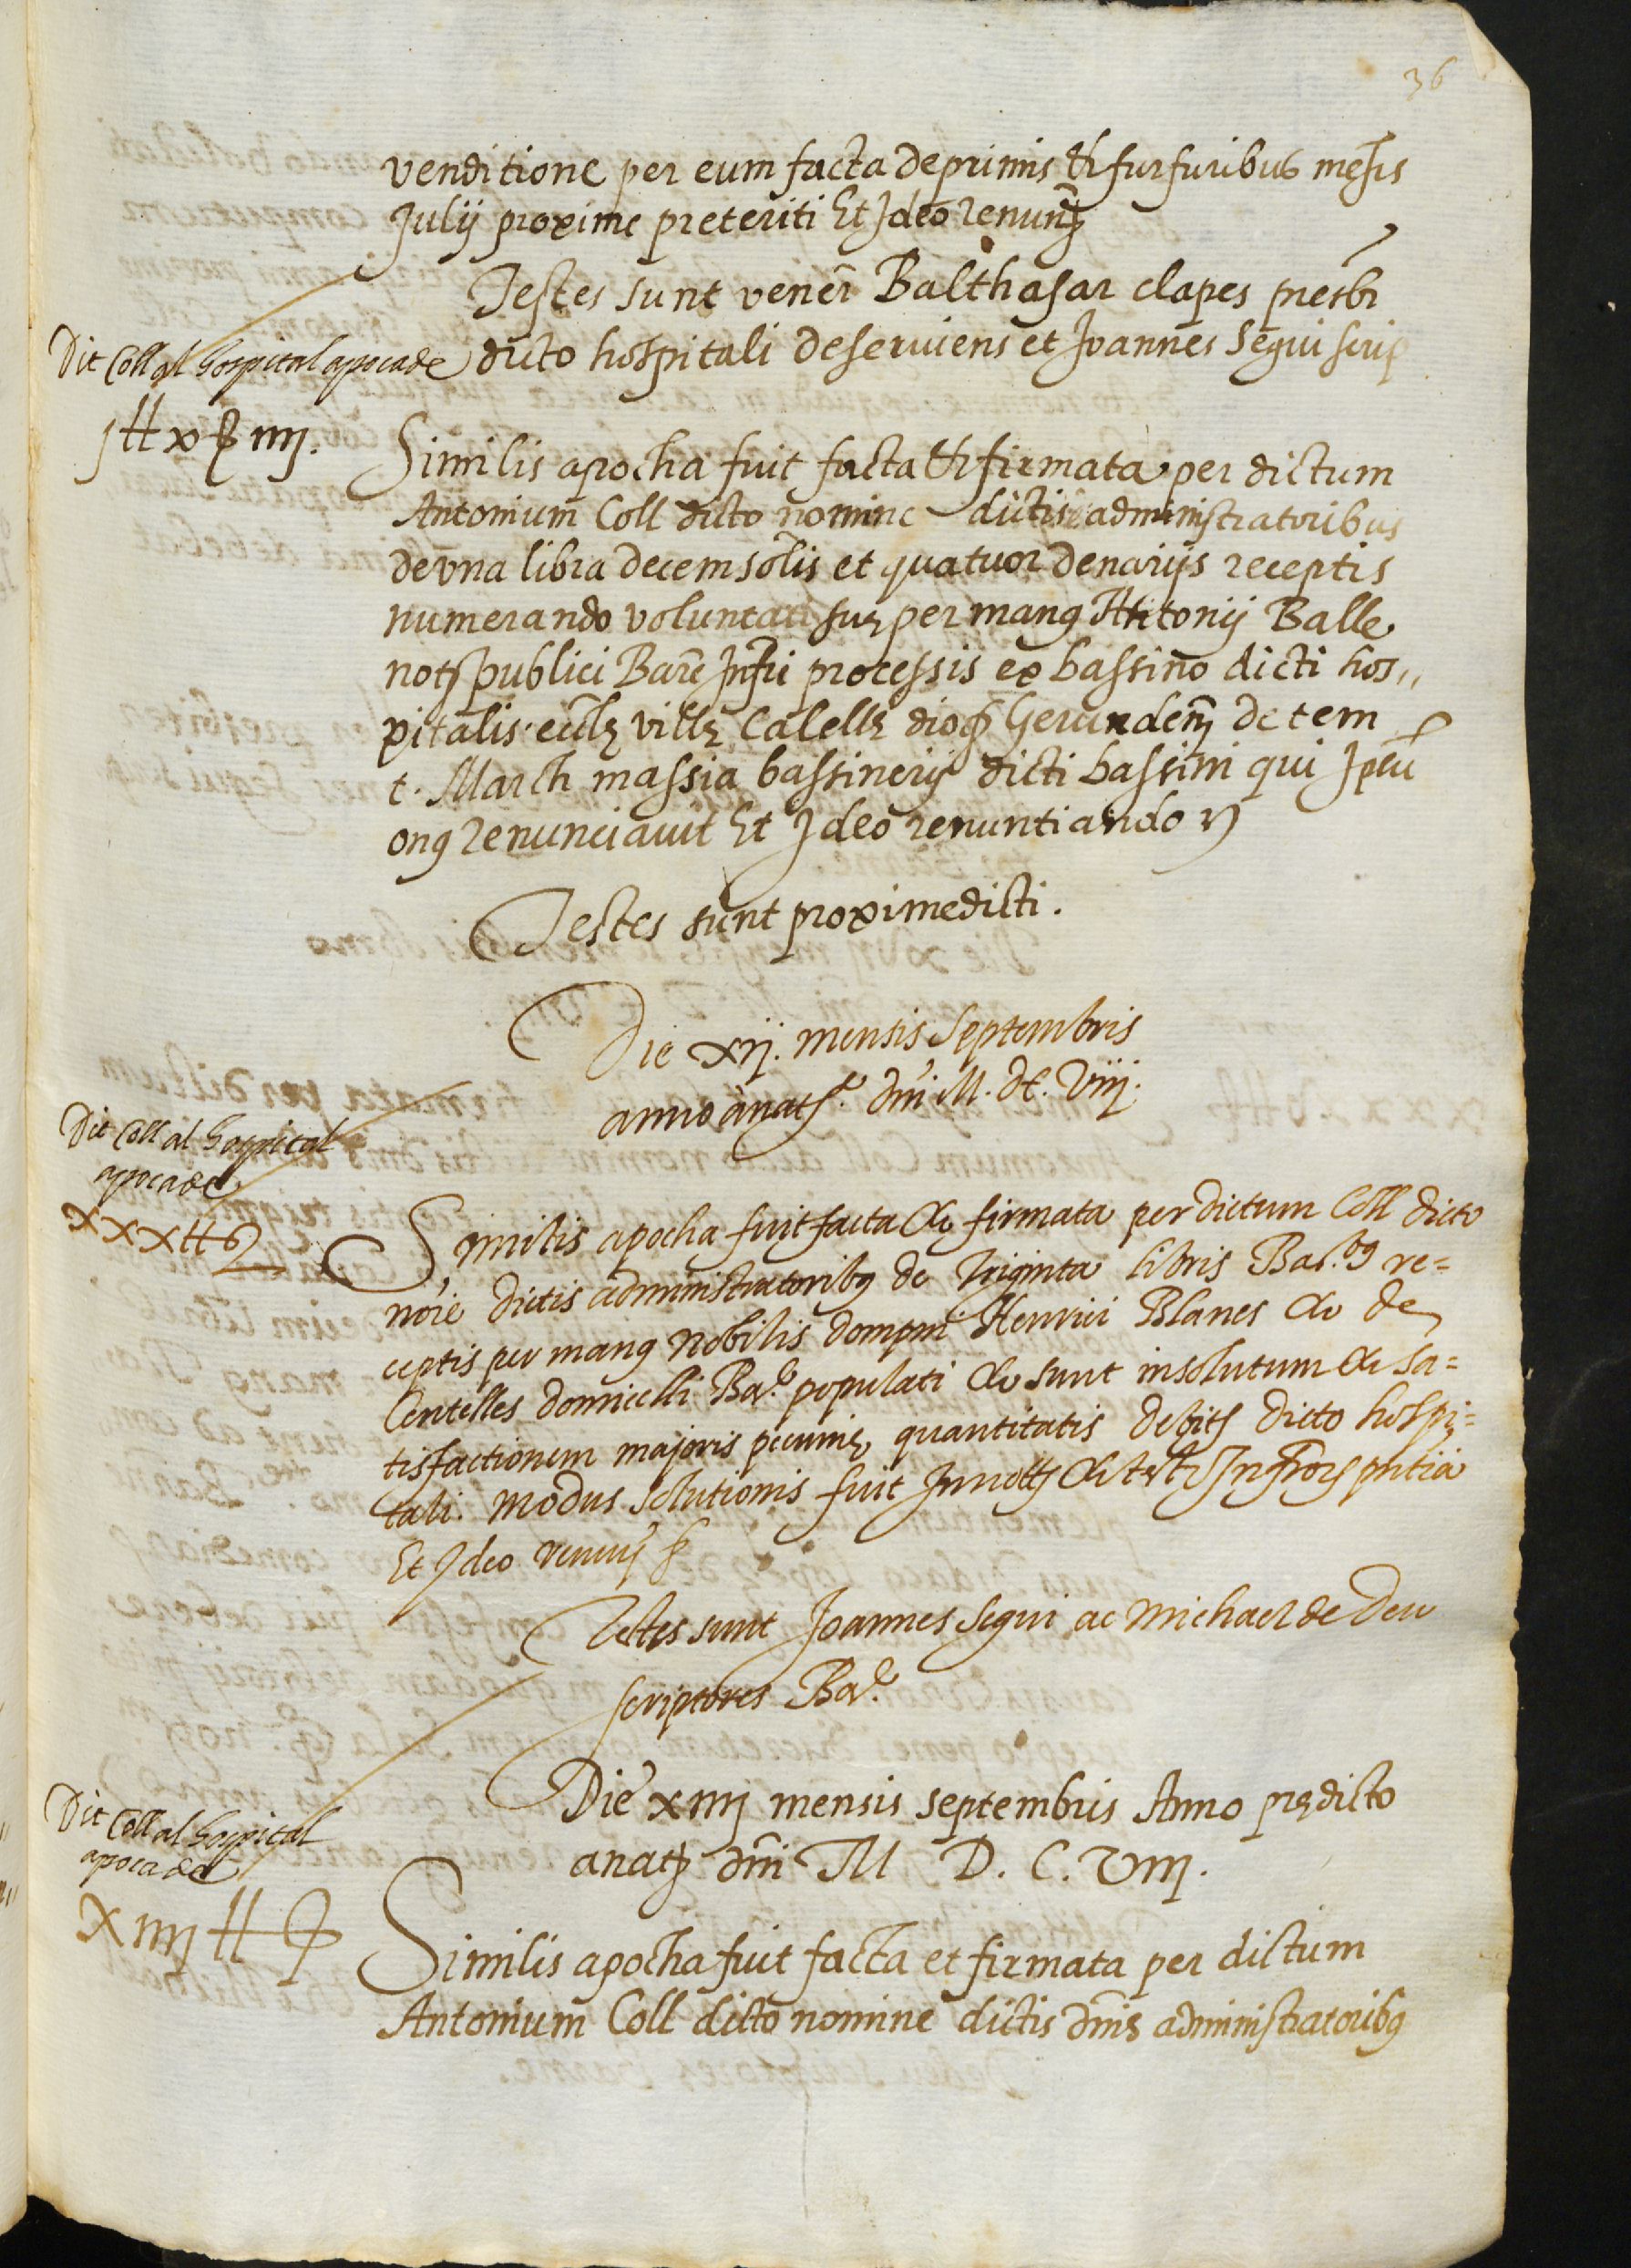 36
venditione per eum facta de primis et furfuribus mēsis
Julij proxime preteriti Et Ideo renunt̄
Testes sunt venēr Balthasar clapes presbr̄
Dit Coll al hospital apoca de
dicto hospitali deserviens et Joannes Segui scrip
j ℔ x ß iiij.
Similis apocha fuit facta et firmata per dictum
Antonium Coll dicto nomine dictis administratoribus
de vna libra decem sōlis et quatuor denarijs receptis
numerando voluntati suę per manꝯ Antonij Balle
notȷ publici Barc̄ processis ex bassino dicti hos,,
pitalis ecclę villę Calellę dioc̄ Gerunden̄ de tem
t. March massia bassinerij dicti bassini qui
onꝯ renunciavit Et Ideo renuntiando
Testes sunt proxime dicti.
Die xij. mensis Septembris
anno a natȷ. dn̄i M. dC. Viiij.
Dit Coll al hospital
apoca de
xxx ℔
Similis apocha fuit facta & firmata per dictum Coll dicto
nōie dictis administratoribꝯ de triginta libris Bar. re=
ceptis per manꝯ Nobilis dompni Henrici Blanes & de
Centelles domicelli Bar. populati & sunt in solutum & sa=
tisfactionem majoris pecunię quantitatis debitȷ dicto hospi=
tali. modus solutionis fuit In
Et Ideo renunȷ
Testes sunt Joannes Segui ac Michael de Deu
scriptores Bar.
Die xiiij mensis septembris Anno prędicto
a natȷ dn̄i M D. C. Viiij.
Dit Coll al hospital
apoca de
xiiij ℔
Similis apocha fuit facta et firmata per dictum
Antonium Coll dicto nomine dictis dn̄is administratoribꝯ